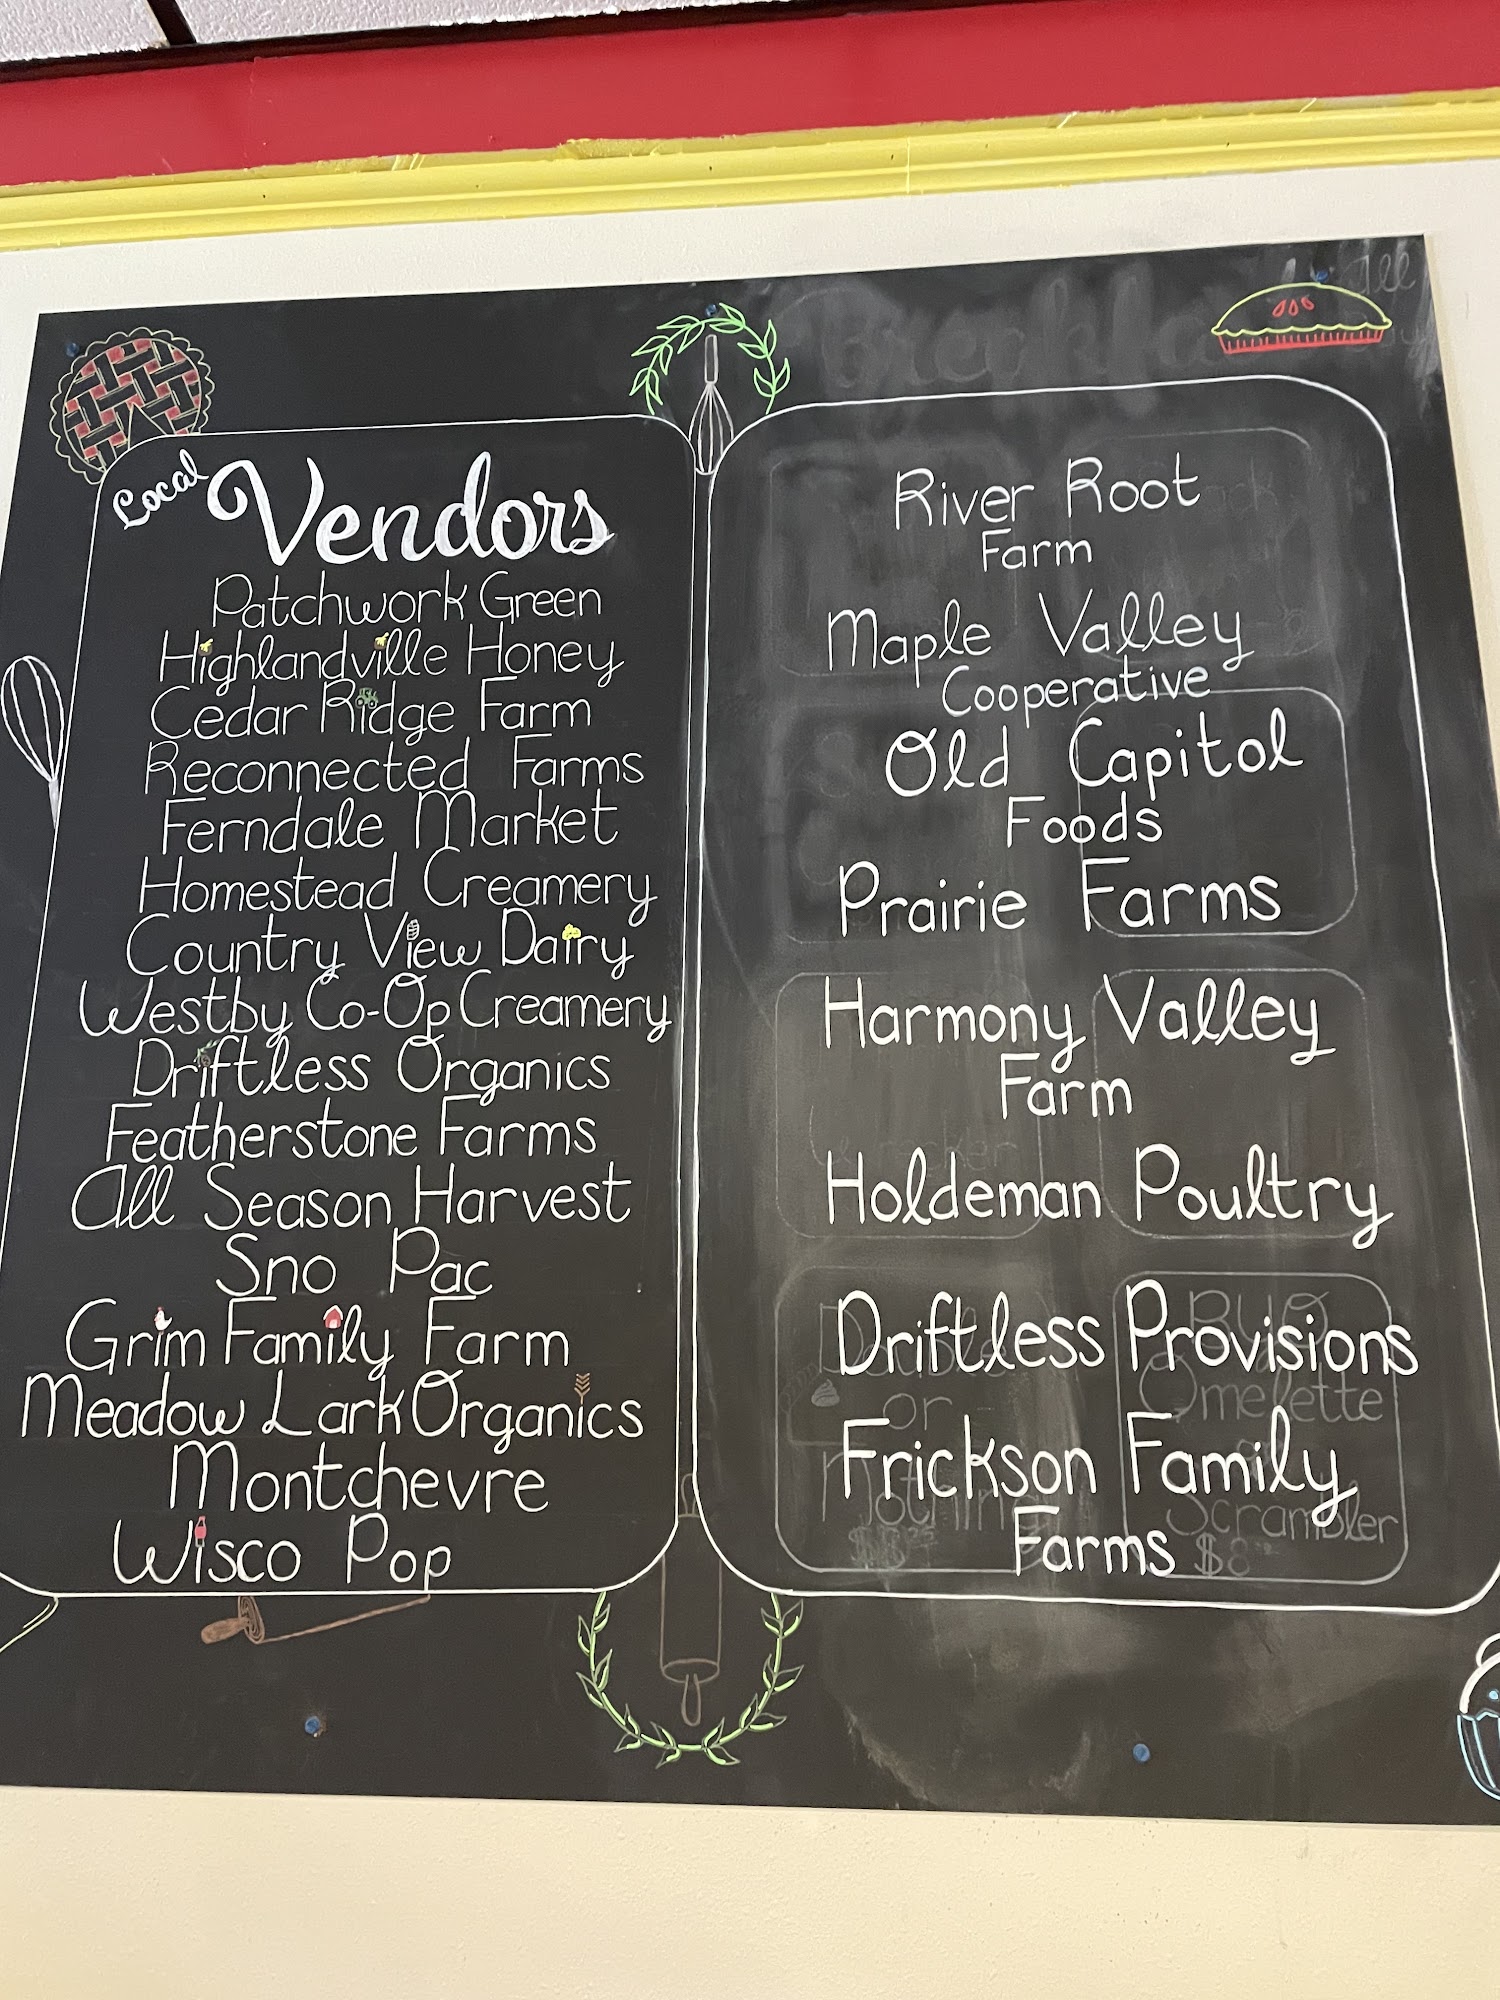 Local Vendors
Patchwork Green
Highlandville Honey
Cedar Ridge Farm
Reconnected Farms
Ferndale Market
Homestead Creamery
Country View Dairy
Westby Co-Op Creamery
Driftless Organics
Featherstone Farms
All Season Harvest
Sno Pac
Grim Family Farm
Meadow Lark Organics
Montchevre
Wisco Pop
Breakfast
All
River Root
Farm
Maple Valley
Cooperative
Old Capitol
Foods
Prairie Farms
Harmony Valley
Farm
Holdeman Poultry
Driftless Provisions
Frickson Family
Farms
Double
or
Nothing
BYO
Omelette
or
Scrambler
$8